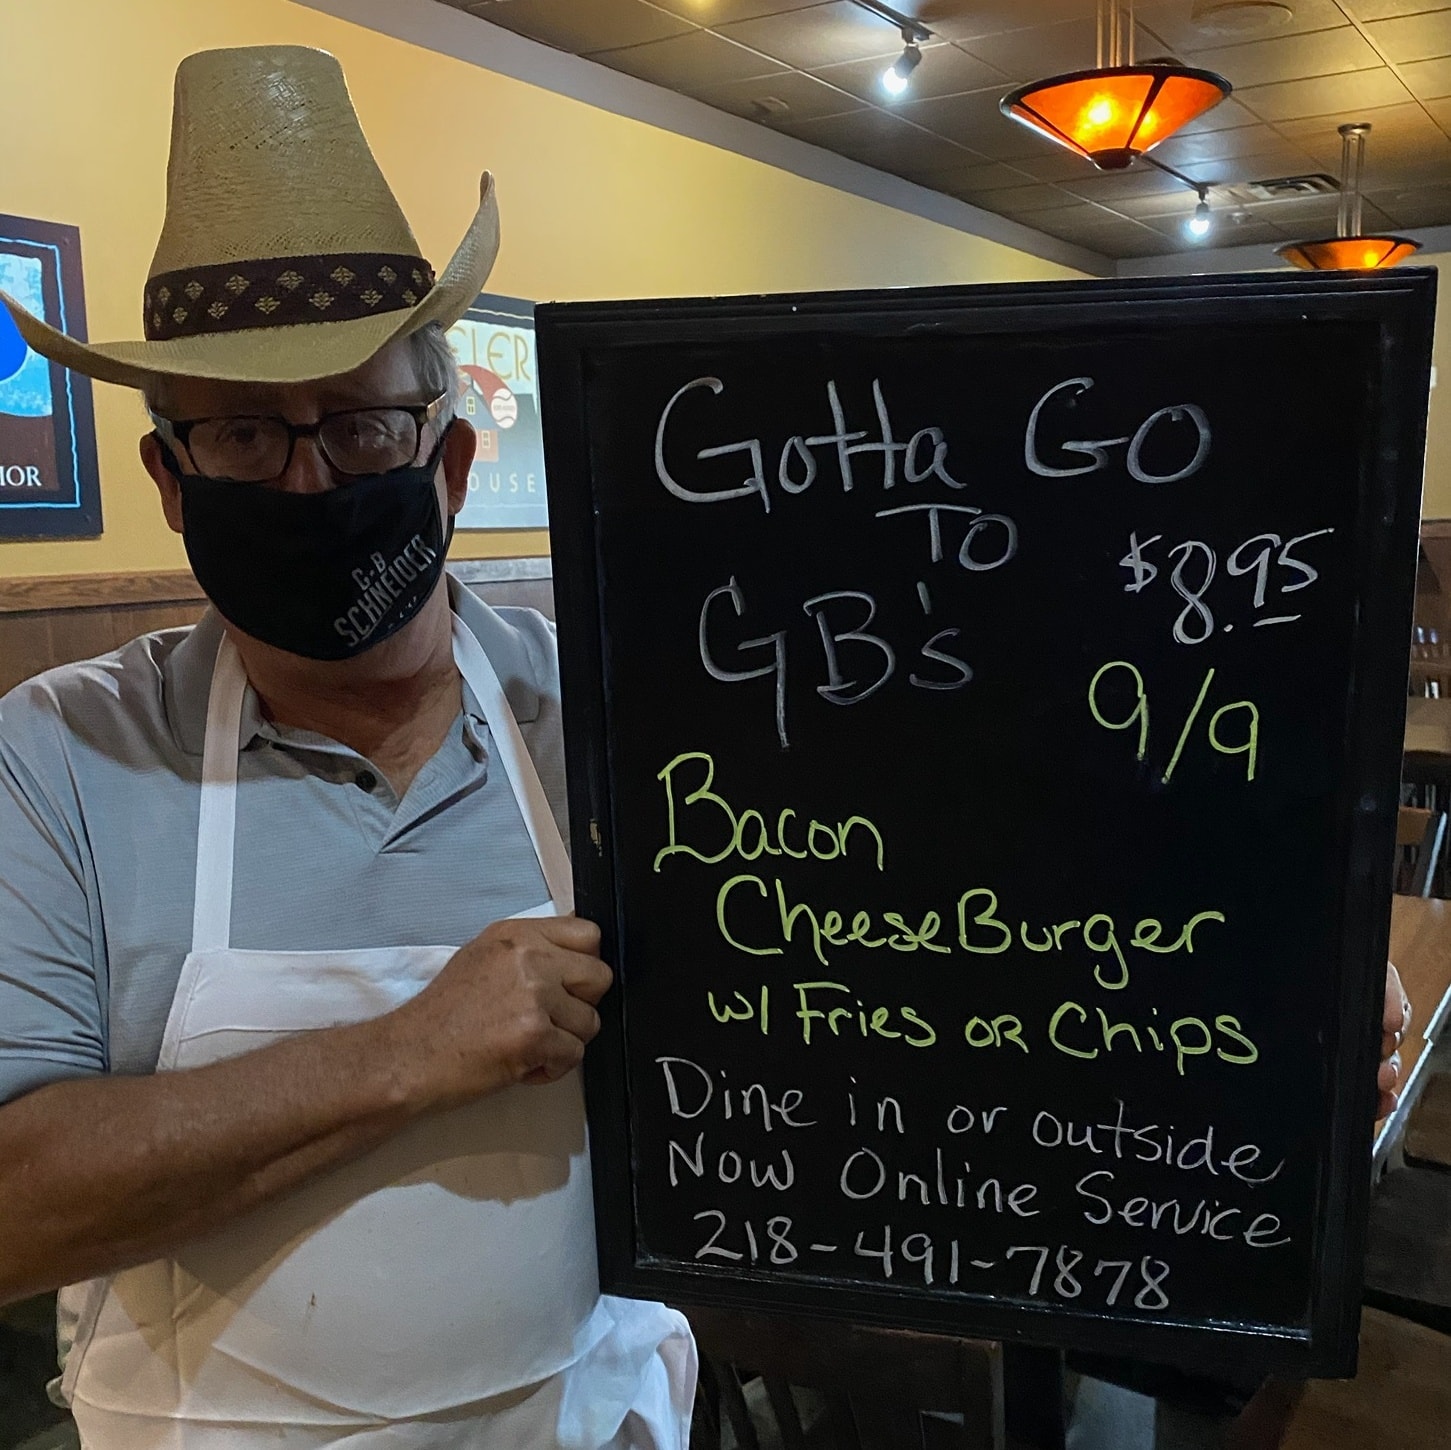 Gotta Go
To
GB's
$8.95
9/9
Bacon
CheeseBurger
w/ Fries or Chips
Dine in or outside
Now Online Service
218-491-7878
G.B
SCHNEIDER